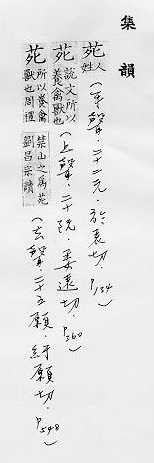 集韻
苑 人姓 (平聲.二十二元.於袁切.P134)
苑 說文所以養禽獸也 (上聲.二十阮.委遠切.P360)
苑 所以養禽獸也周禮禁山之為苑劉昌宗讀 (去聲.二十五願.紆願切.P548)